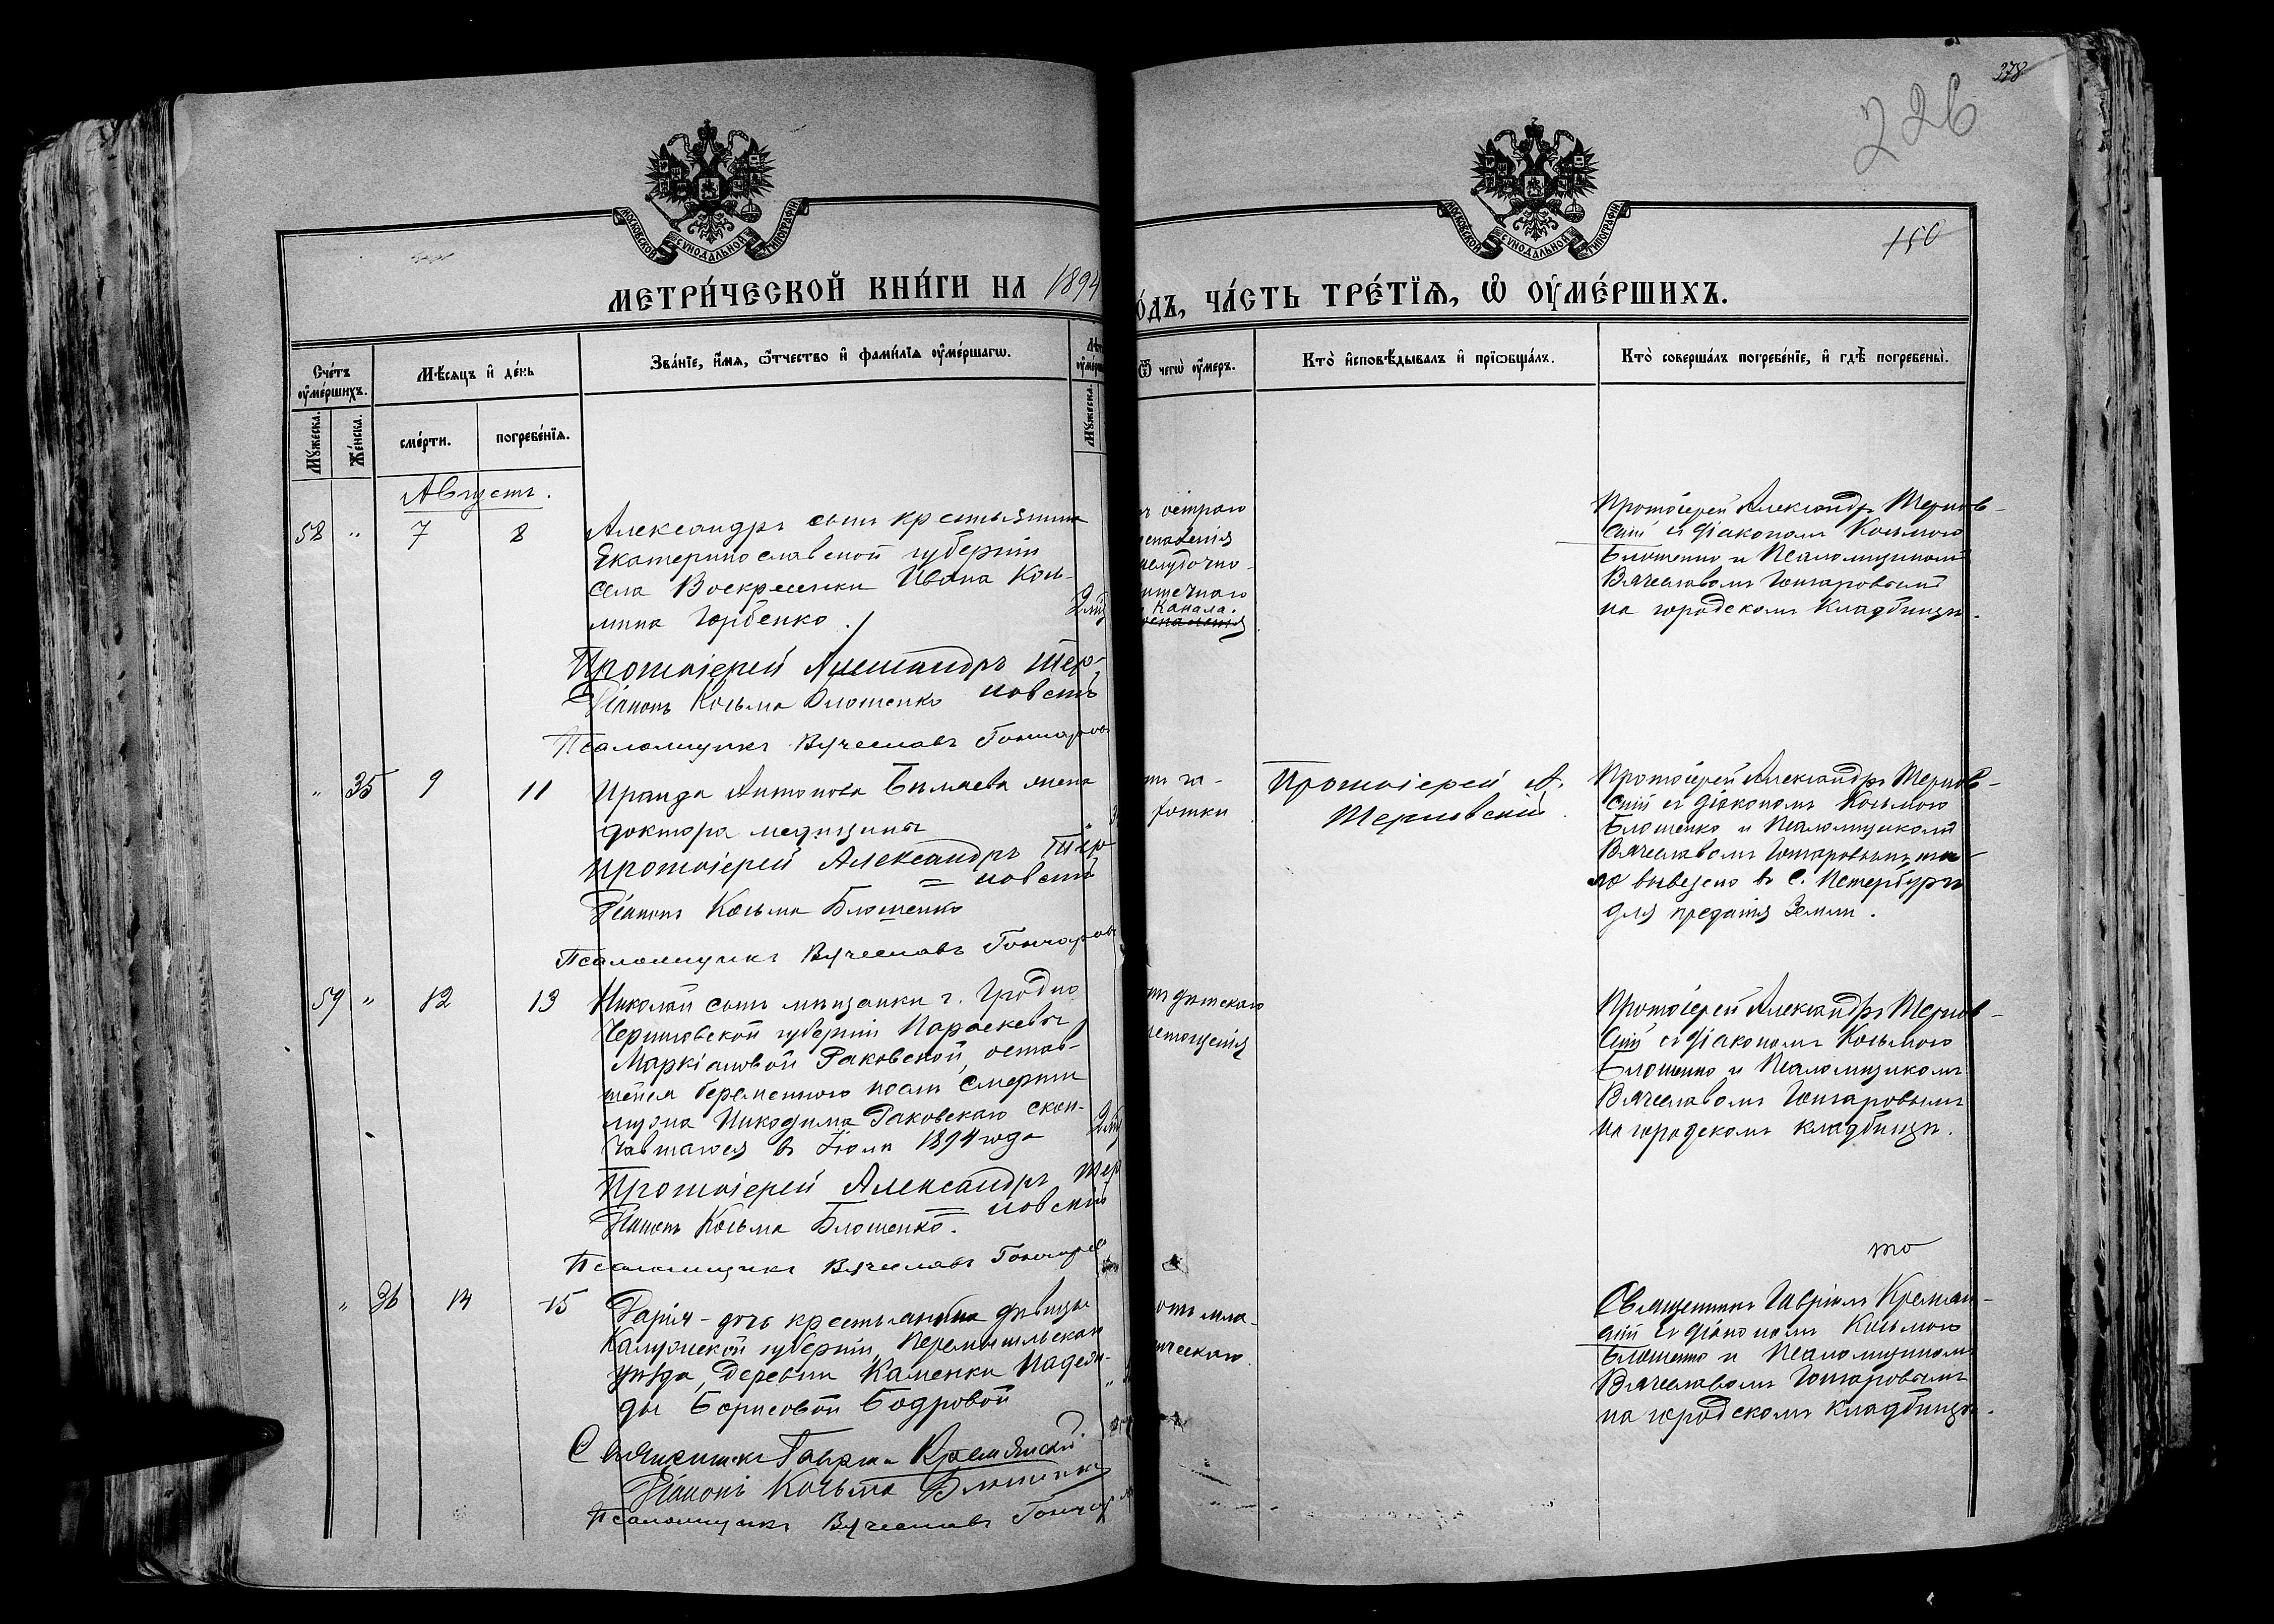 378
226
150
МОСКОВСКОЙ СѴНОДАЛЬНОЙ ТИПОГРАФІИ
МОСКОВСКОЙ СѴНОДАЛЬНОЙ ТИПОГРАФІИ
МЕТРИ́ЧЕСКОЙ КНИ́ГИ НА 1894
О́ДЪ, ЧА́СТЬ ТРЕ́ТЇѦ, Ѡ҆ ОУ҆МЕ́РШИХЪ.
Сче́тъ оу҆ме́ршихъ.
Мꙋ́жеска.
Же́нска.
Мѣ́сяцъ и҆ де́нь
сме́рти.
погребе́нїѧ.
Зва́нїе, и҆́мѧ, ѻ҆́тчество и҆ фамѝлїѧ оу҆ме́ршагѡ.
Мꙋ́жеска.
Ѿ чегѡ̀ оу҆́меръ.
Кто̀ и҆сповѣ́дывалъ и҆ прїѡбща́лъ.
Кто̀ соверша́лъ погребе́нїе, и҆ гдѣ̀ погребены̀.
Августъ.
58 " 7 8
Александръ сынъ крестьянина
Екатеринославской губерніи
села Воскресенки Ивана Козь-
мина Горбенко.
Протоіерей Александръ Тер-
новскій
Діаконъ Козьма Блошенко
Псаломщикъ Вячеславъ Гончаровъ
остраго
желудочно-
кишечнаго
канала.
Протоіерей Александръ Тернов-
скій съ діакономъ Козьмою
Блошенко и Псаломщикомъ
Вячеславомъ Гончаровымъ
на городскомъ кладбищѣ.
" 35 9 11
Ираида Антонова Биляева жена
доктора медицины
Протоіерей Александръ Тер-
новскій
Діаконъ Козьма Блошенко
Псаломщикъ Вячеславъ Гончаровъ
ча-
хотки
Протоіерей А.
Терновскій
Протоіерей Александръ Тернов-
скій съ діакономъ Козьмою
Блошенко и Псаломщикомъ
Вячеславомъ Гончаровымъ, тѣ-
ло вывезено въ С. Петербургъ
для преданія землѣ.
59 " 12 13
Николай сынъ мѣщанки г. Гродно
Черниговской губерніи Параскевы
Маркіановой Раковской, остав-
шейся беременною послѣ смерти
мужа Никодима Раковскаго скон-
чавшагося въ Іюлѣ 1894 года
Протоіерей Александръ Тер
новскій
Діаконъ Козьма Блошенко.
Псаломщикъ Вячеславъ Гончаровъ
дѣтскаго
истощенія
Протоіерей Александръ Тернов-
скій съ діакономъ Козьмою
Блошенко и Псаломщикомъ
Вячеславомъ Гончаровымъ
на городскомъ кладбищѣ.
" 36 14 15
Дарія - дочь крестьянки дѣвицы
Калужской губерніи, Перемышльскаго
уѣзда, деревни Каменки Надеж-
ды Борисовой Бодровой
Священникъ Гавріилъ Кремянскій
Діаконъ Козьма Блошенко
Псаломщикъ Вячеславъ Гончаровъ
то
Священникъ Гавріилъ Кремян-
скій съ діакономъ Козьмою
Блошенко и Псаломщикомъ
Вячеславомъ Гончаровымъ
на городскомъ кладбищѣ.